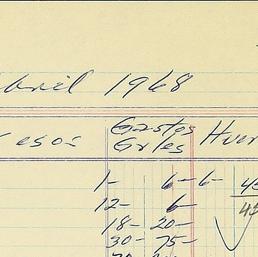 abril 1968
esos Gastos Grles Huer
1- 6- 6-
12- 6-
18- 20-
30- 75-